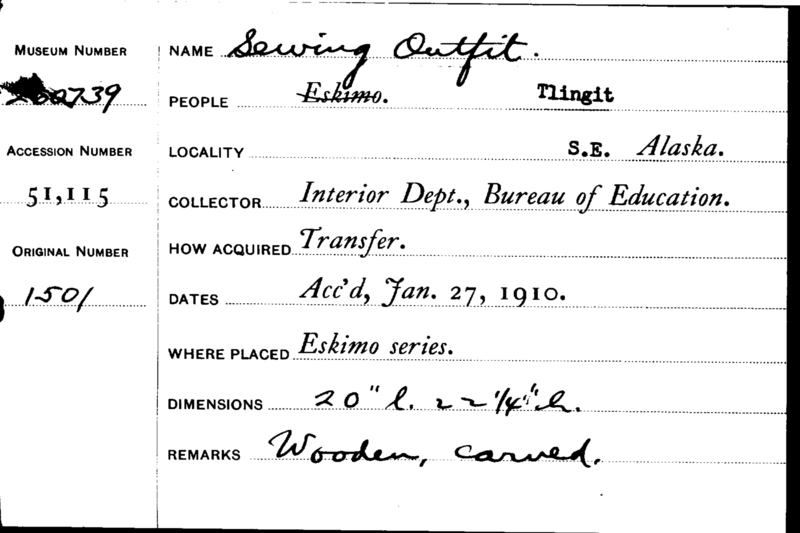 MUSEUM NUMBER
260739
ACCESSION NUMBER
51,115
ORIGINAL NUMBER
1501
NAME Sewing Outfit.
PEOPLE Eskimo. Tlingit
LOCALITY S.E. Alaska.
COLLECTOR Interior Dept., Bureau of Education.
HOW ACQUIRED Transfer.
DATES Acc'd, Jan. 27, 1910.
WHERE PLACED Eskimo series.
DIMENSIONS 20" l. 22 1/4" h.
REMARKS Wooden, carved.